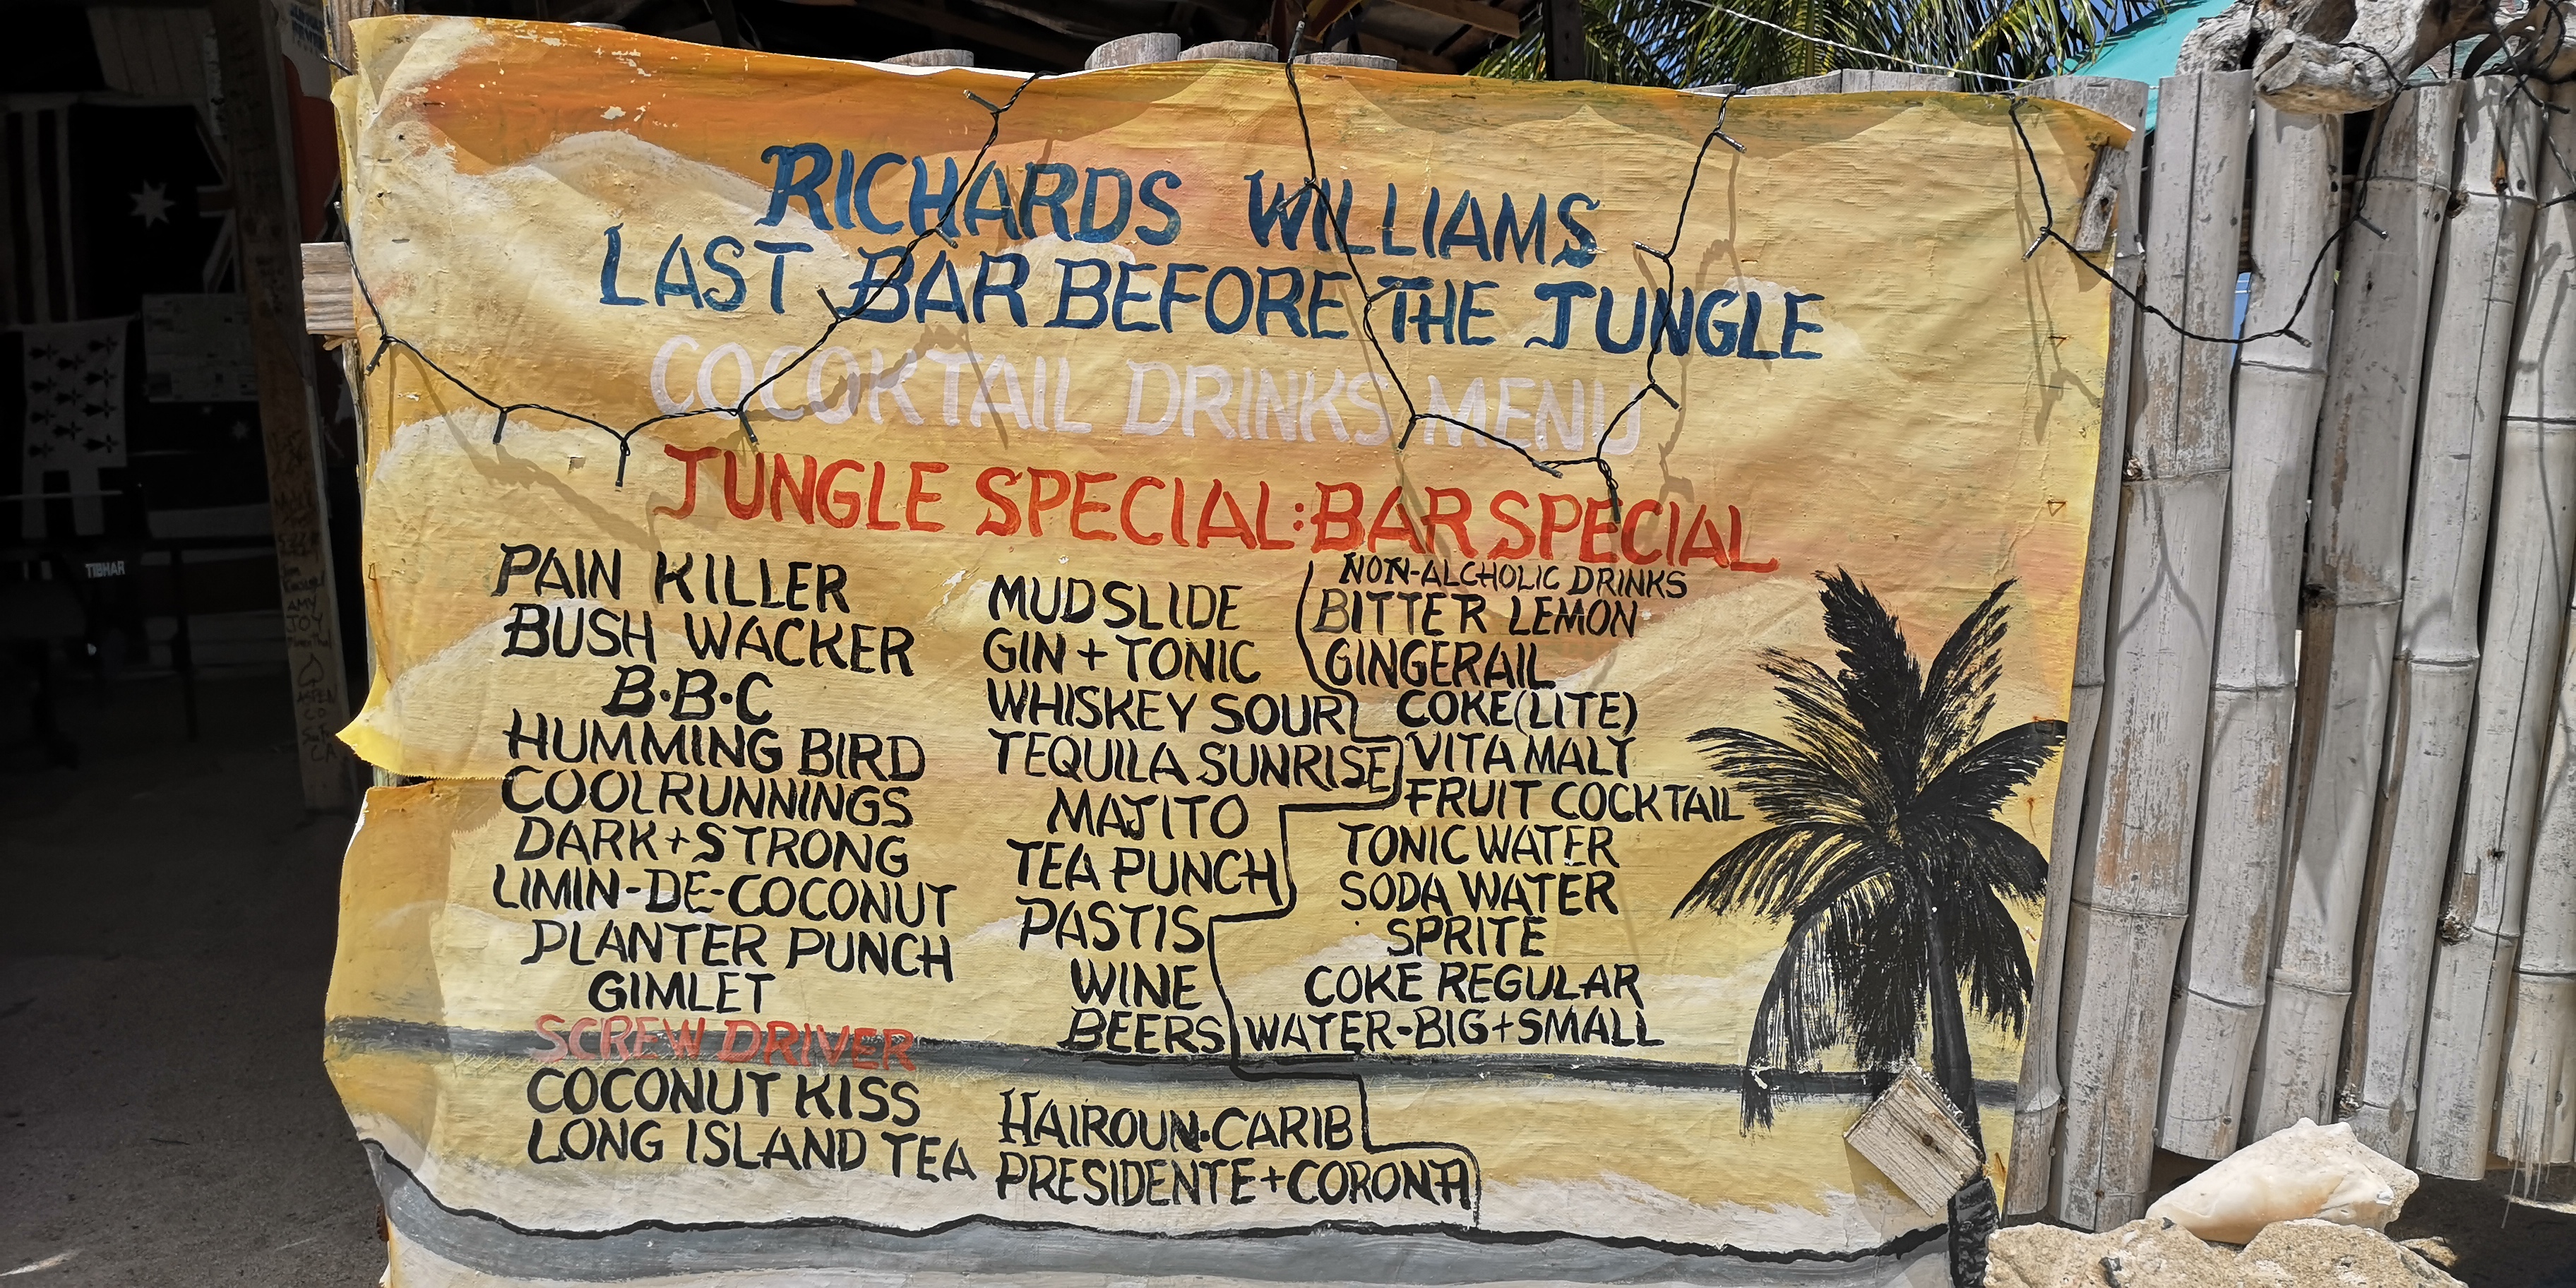 RICHARDS WILLIAMS
LAST BAR BEFORE THE JUNGLE
COCOKTAIL DRINKS MENU
JUNGLE SPECIAL:BAR SPECIAL
PAIN KILLER
BUSH WACKER
B·B·C
HUMMING BIRD
COOLRUNNINGS
DARK+STRONG
LIMIN-DE-COCONUT
PLANTER PUNCH
GIMLET
SCREW DRIVER
COCONUT KISS
LONG ISLAND TEA
MUDSLIDE
GIN+TONIC
WHISKEY SOUR
TEQUILA SUNRISE
MAJITO
TEA PUNCH
PASTIS
WINE
BEERS
HAIROUN·CARIB
PRESIDENTE+CORONA
NON-ALCHOLIC DRINKS
BITTER LEMON
GINGERAIL
COKE(LITE)
VITA MALT
FRUIT COCKTAIL
TONIC WATER
SODA WATER
SPRITE
COKE REGULAR
WATER-BIG+SMALL
TIBHAR